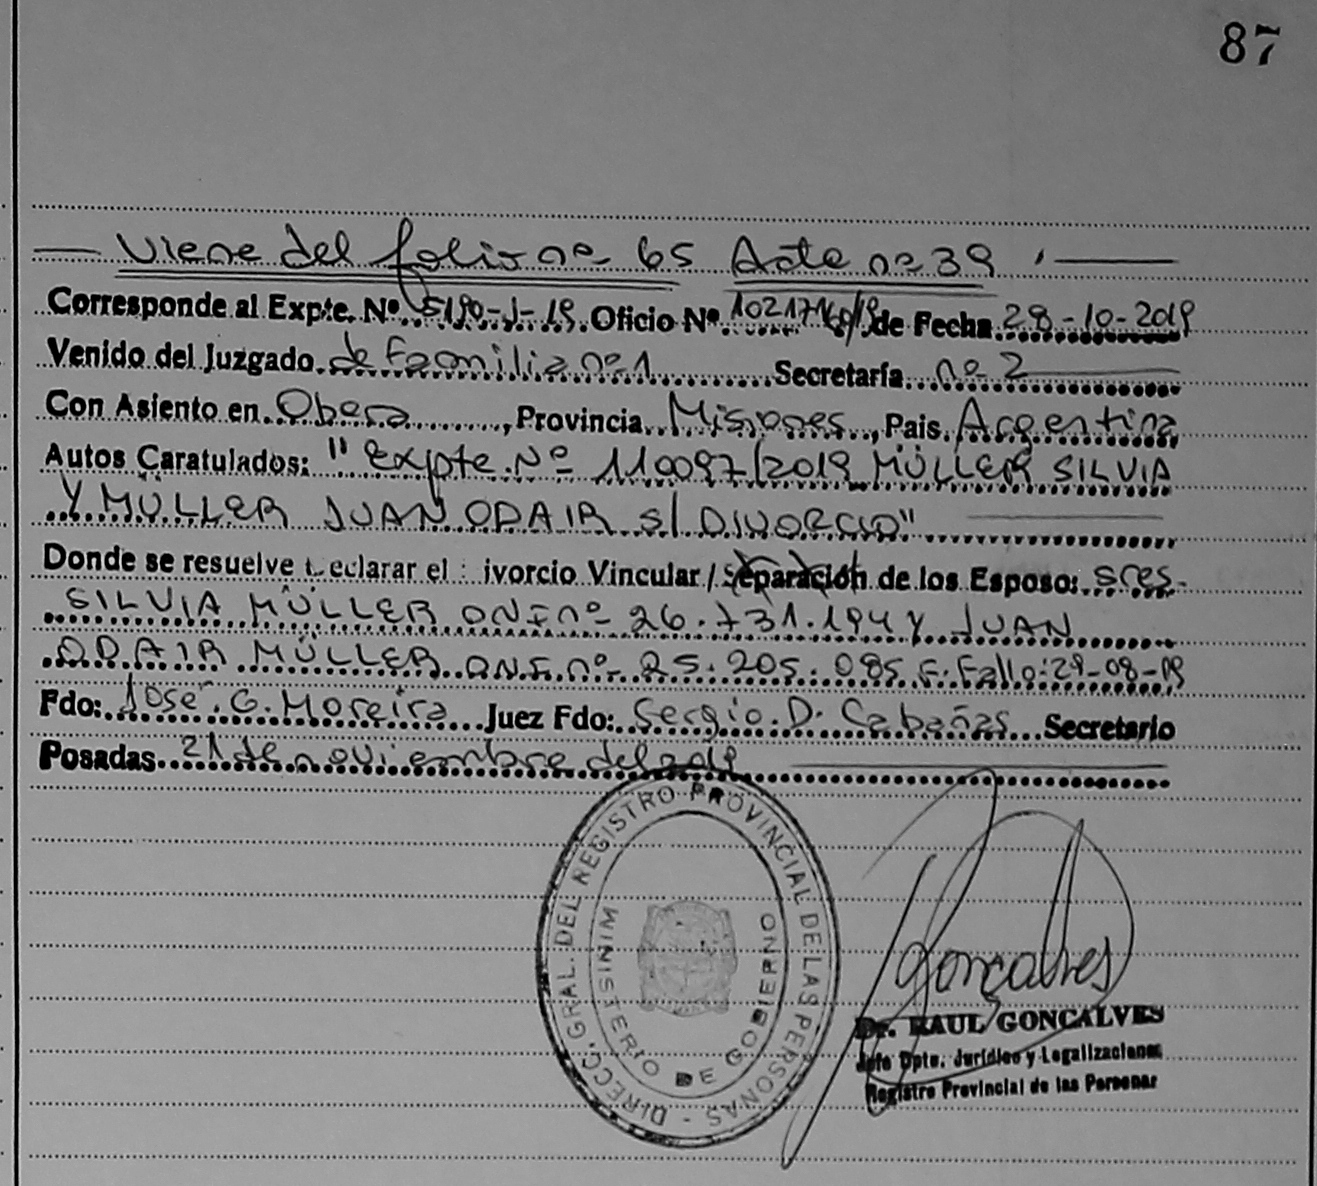 87
Viene del folio nº 65 Acta nº 39
Corresponde al Expte. Nº 5190-J-19. Oficio Nº de Fecha 28-10-2019
Venido del Juzgado de Familia nº 1 Secretaría nº 2
Con Asiento en Oberá, Provincia Misiones, Pais Argentina
Autos Caratulados: "Expte. Nº 110097/2019 MÜLLER SILVIA
Y MÜLLER JUAN ODAIR S/ DIVORCIO"
Donde se resuelve declarar el divorcio Vincular / Separación de los Esposo: sres.
SILVIA MÜLLER DNI nº 26.731.194 Y JUAN
ODAIR MÜLLER DNI. nº 25.205.085 F. Fallo: 29-08-19
Fdo: José G. Moreira Juez Fdo: Sergio D. Cabañas Secretario
Posadas 21 de noviembre del 2019
DIRECC. GRAL. DEL REGISTRO PROVINCIAL DE LAS PERSONAS -
MINISTERIO DE GOBIERNO
Goncalves
Dr. RAUL GONCALVES
Jefe Dpto. Jurídico y Legalizaciones
Registro Provincial de las Personas